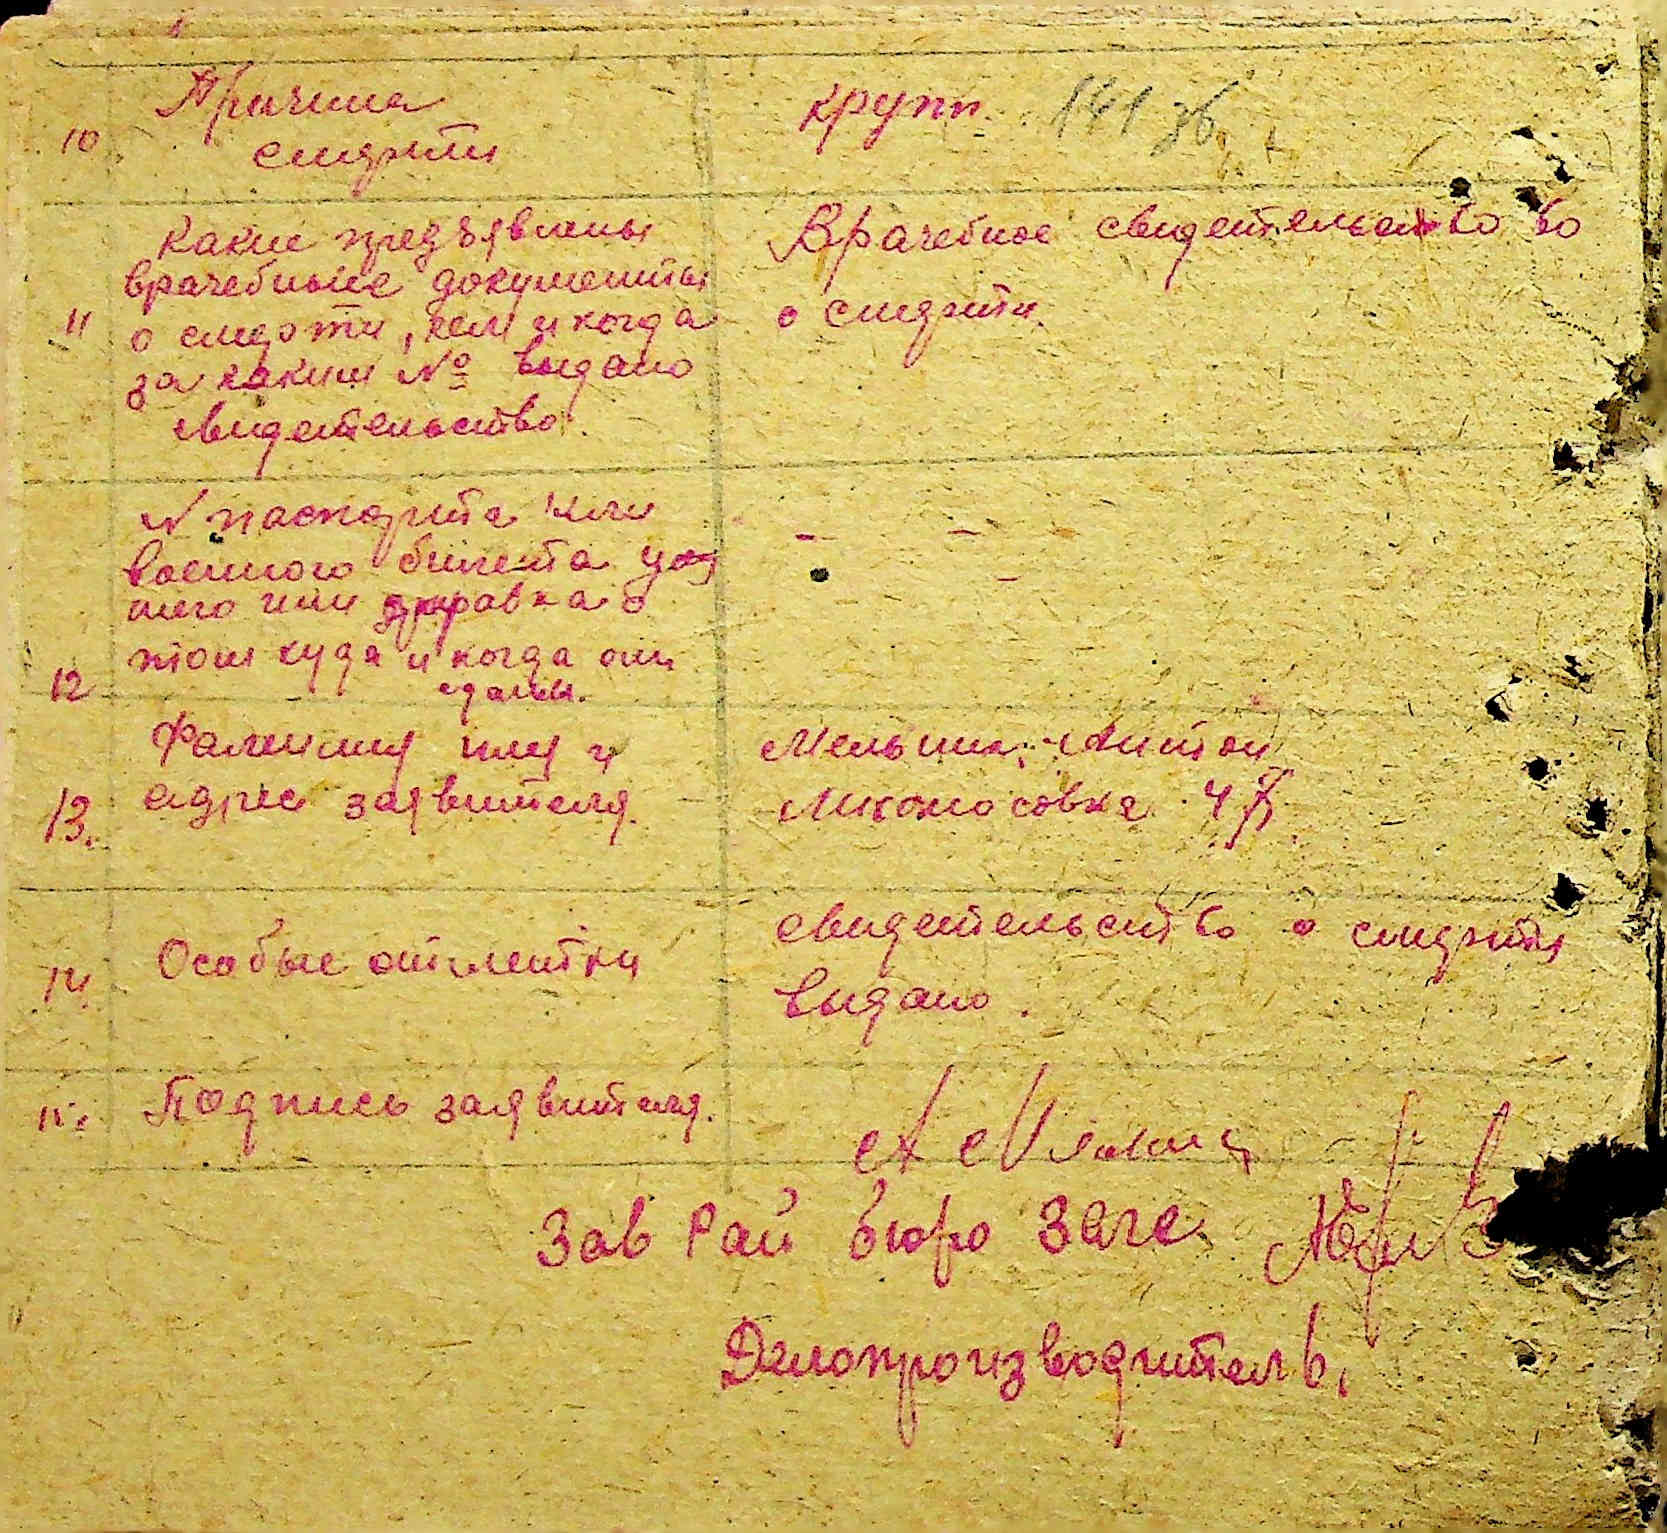 10 Причина
смерти
крупп. 141 зв
11 Какие предъявлены
врачебные документы
о смерти, кем и когда
за каким № выдано
свидетельство.
Врачебное свидетельство во
о смерти
12 N паспорта или
военного билета
или справка о
том куда и когда они
сданы.
- -
-
13. Фамилия имя и
адрес заявителя.
Мельник Антон
14. Особые отметки
свидетельство о смерти
выдано.
15. Подпись заявителя.
Зав Рай бюро Загс
Делопроизводитель.